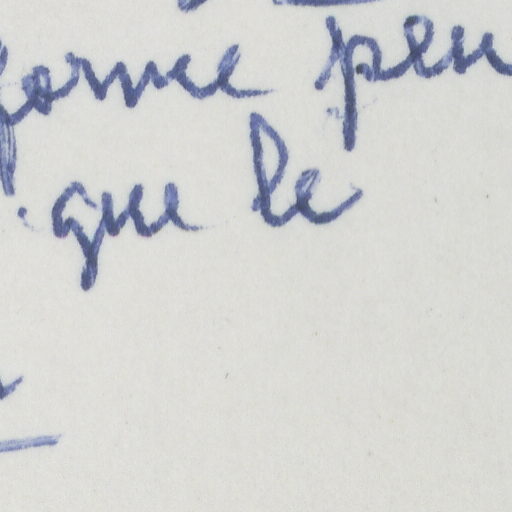 forme peu
que le